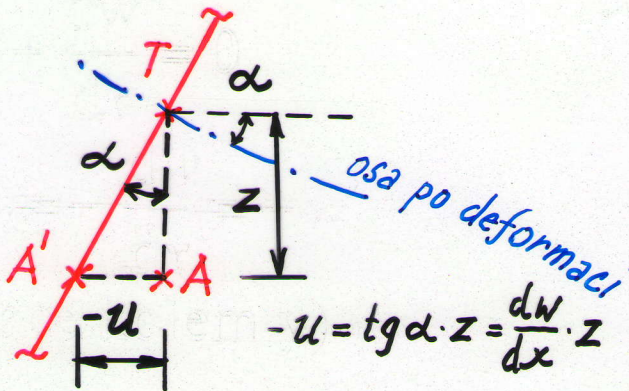 T
α
α
osa po deformaci
z
A'
A
-u
-u = tg α · z = dw/dx · z